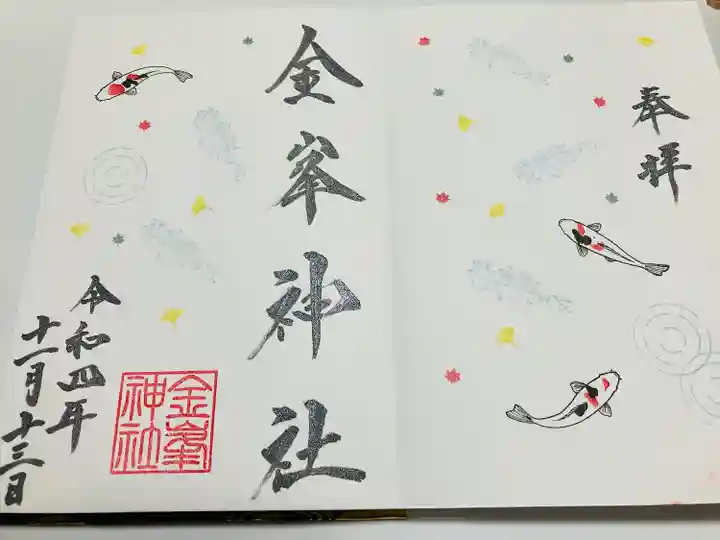 奉拝
金峯神社
令和四年
十一月十三日
金峯
神社